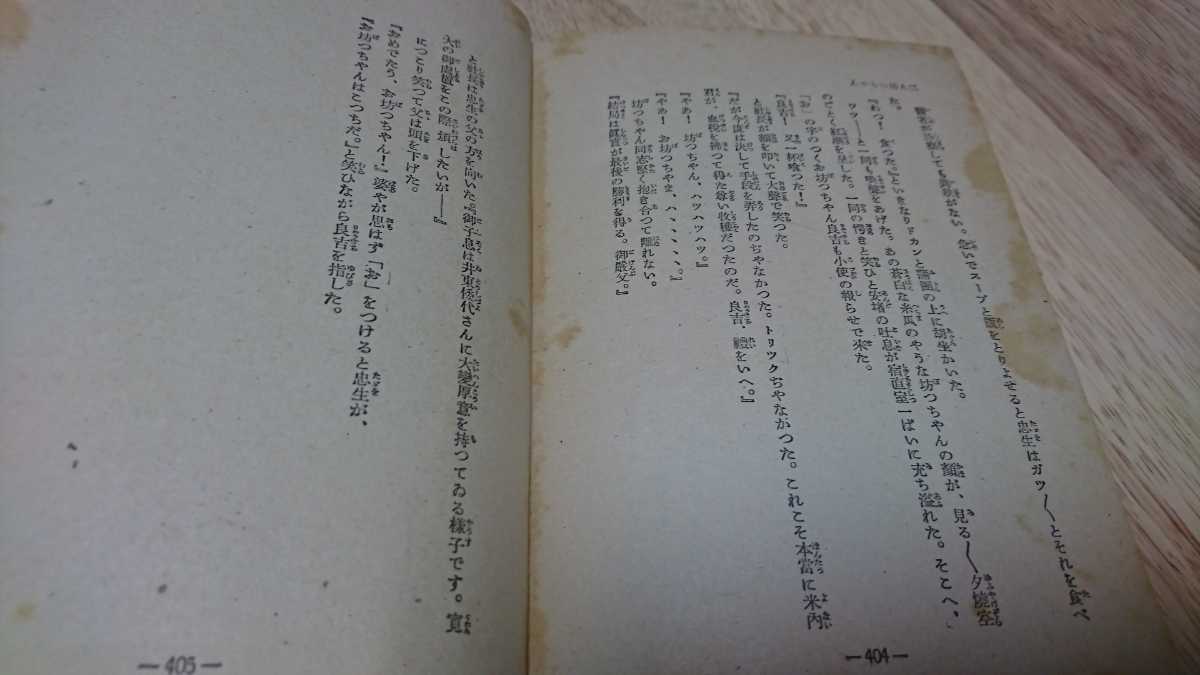 しても
がない。急いでスープと
をとりよせると忠生はガツ〱とそれを食べ
た。
『おつ！食つた』といきなりドカンと
の上に胡坐かいた。
ワッ――と一同も喚聲をあげた。あの蒼白な糸瓜のやうな坊つちやんの顏が、見る〱夕燒空
のごとく紅潮を呈した。一同の愕きと笑ひと安堵の吐息が宿直室一ぱいに充ち溢れた。そこへ、
『お』の字のつくお坊つちやん良吉も小使の報らせで來た。
『良吉！又一杯喰つた！』
と社長が額を叩いて大聲で笑つた。
『だが今度は決して手段を弄したのぢやなかつた。トリックぢやなかつた。これこそ本當に米內
君が、血稅を拂つて得た尊い收穫だつたのだ。良吉・禮をいへ。』
『やあ！坊つちやん、ハツハツハツ。』
『やあ！お坊つちやま、ハヽヽヽヽ。』
坊つちやん同志堅く抱き合つて離れない。
『結局は健實が最後の勝利を得る。御嚴父。』
―404―
と社長は忠生の父の方を向いた『御子息は非東
代さんに大變厚意を持つてゐる樣子です。寬
大の御處置をこの際煩したいが――』
につこり笑つて父は頭を下げた。
『おめでたう、お坊つちやん！』婆やが思はず「お」をつけると忠生が、
『お坊つちやんはこつちだ。』と笑ひながら良吉を指した。
―405―